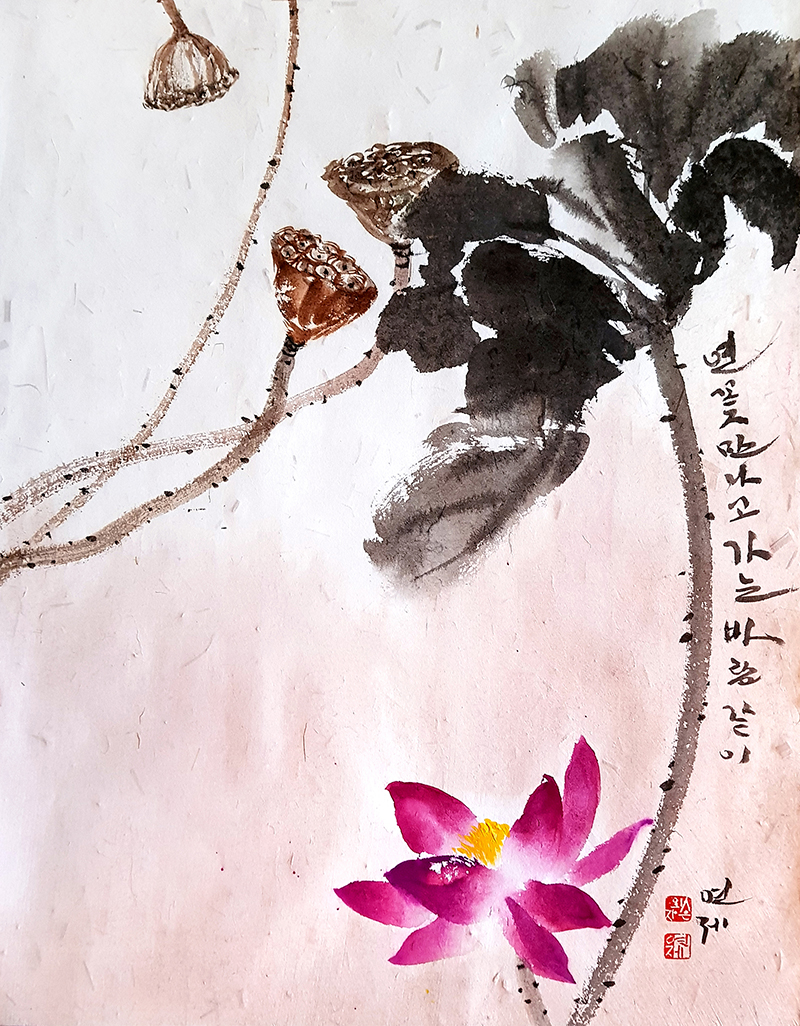 연꽃 만나고 가는 바람 같이
연제